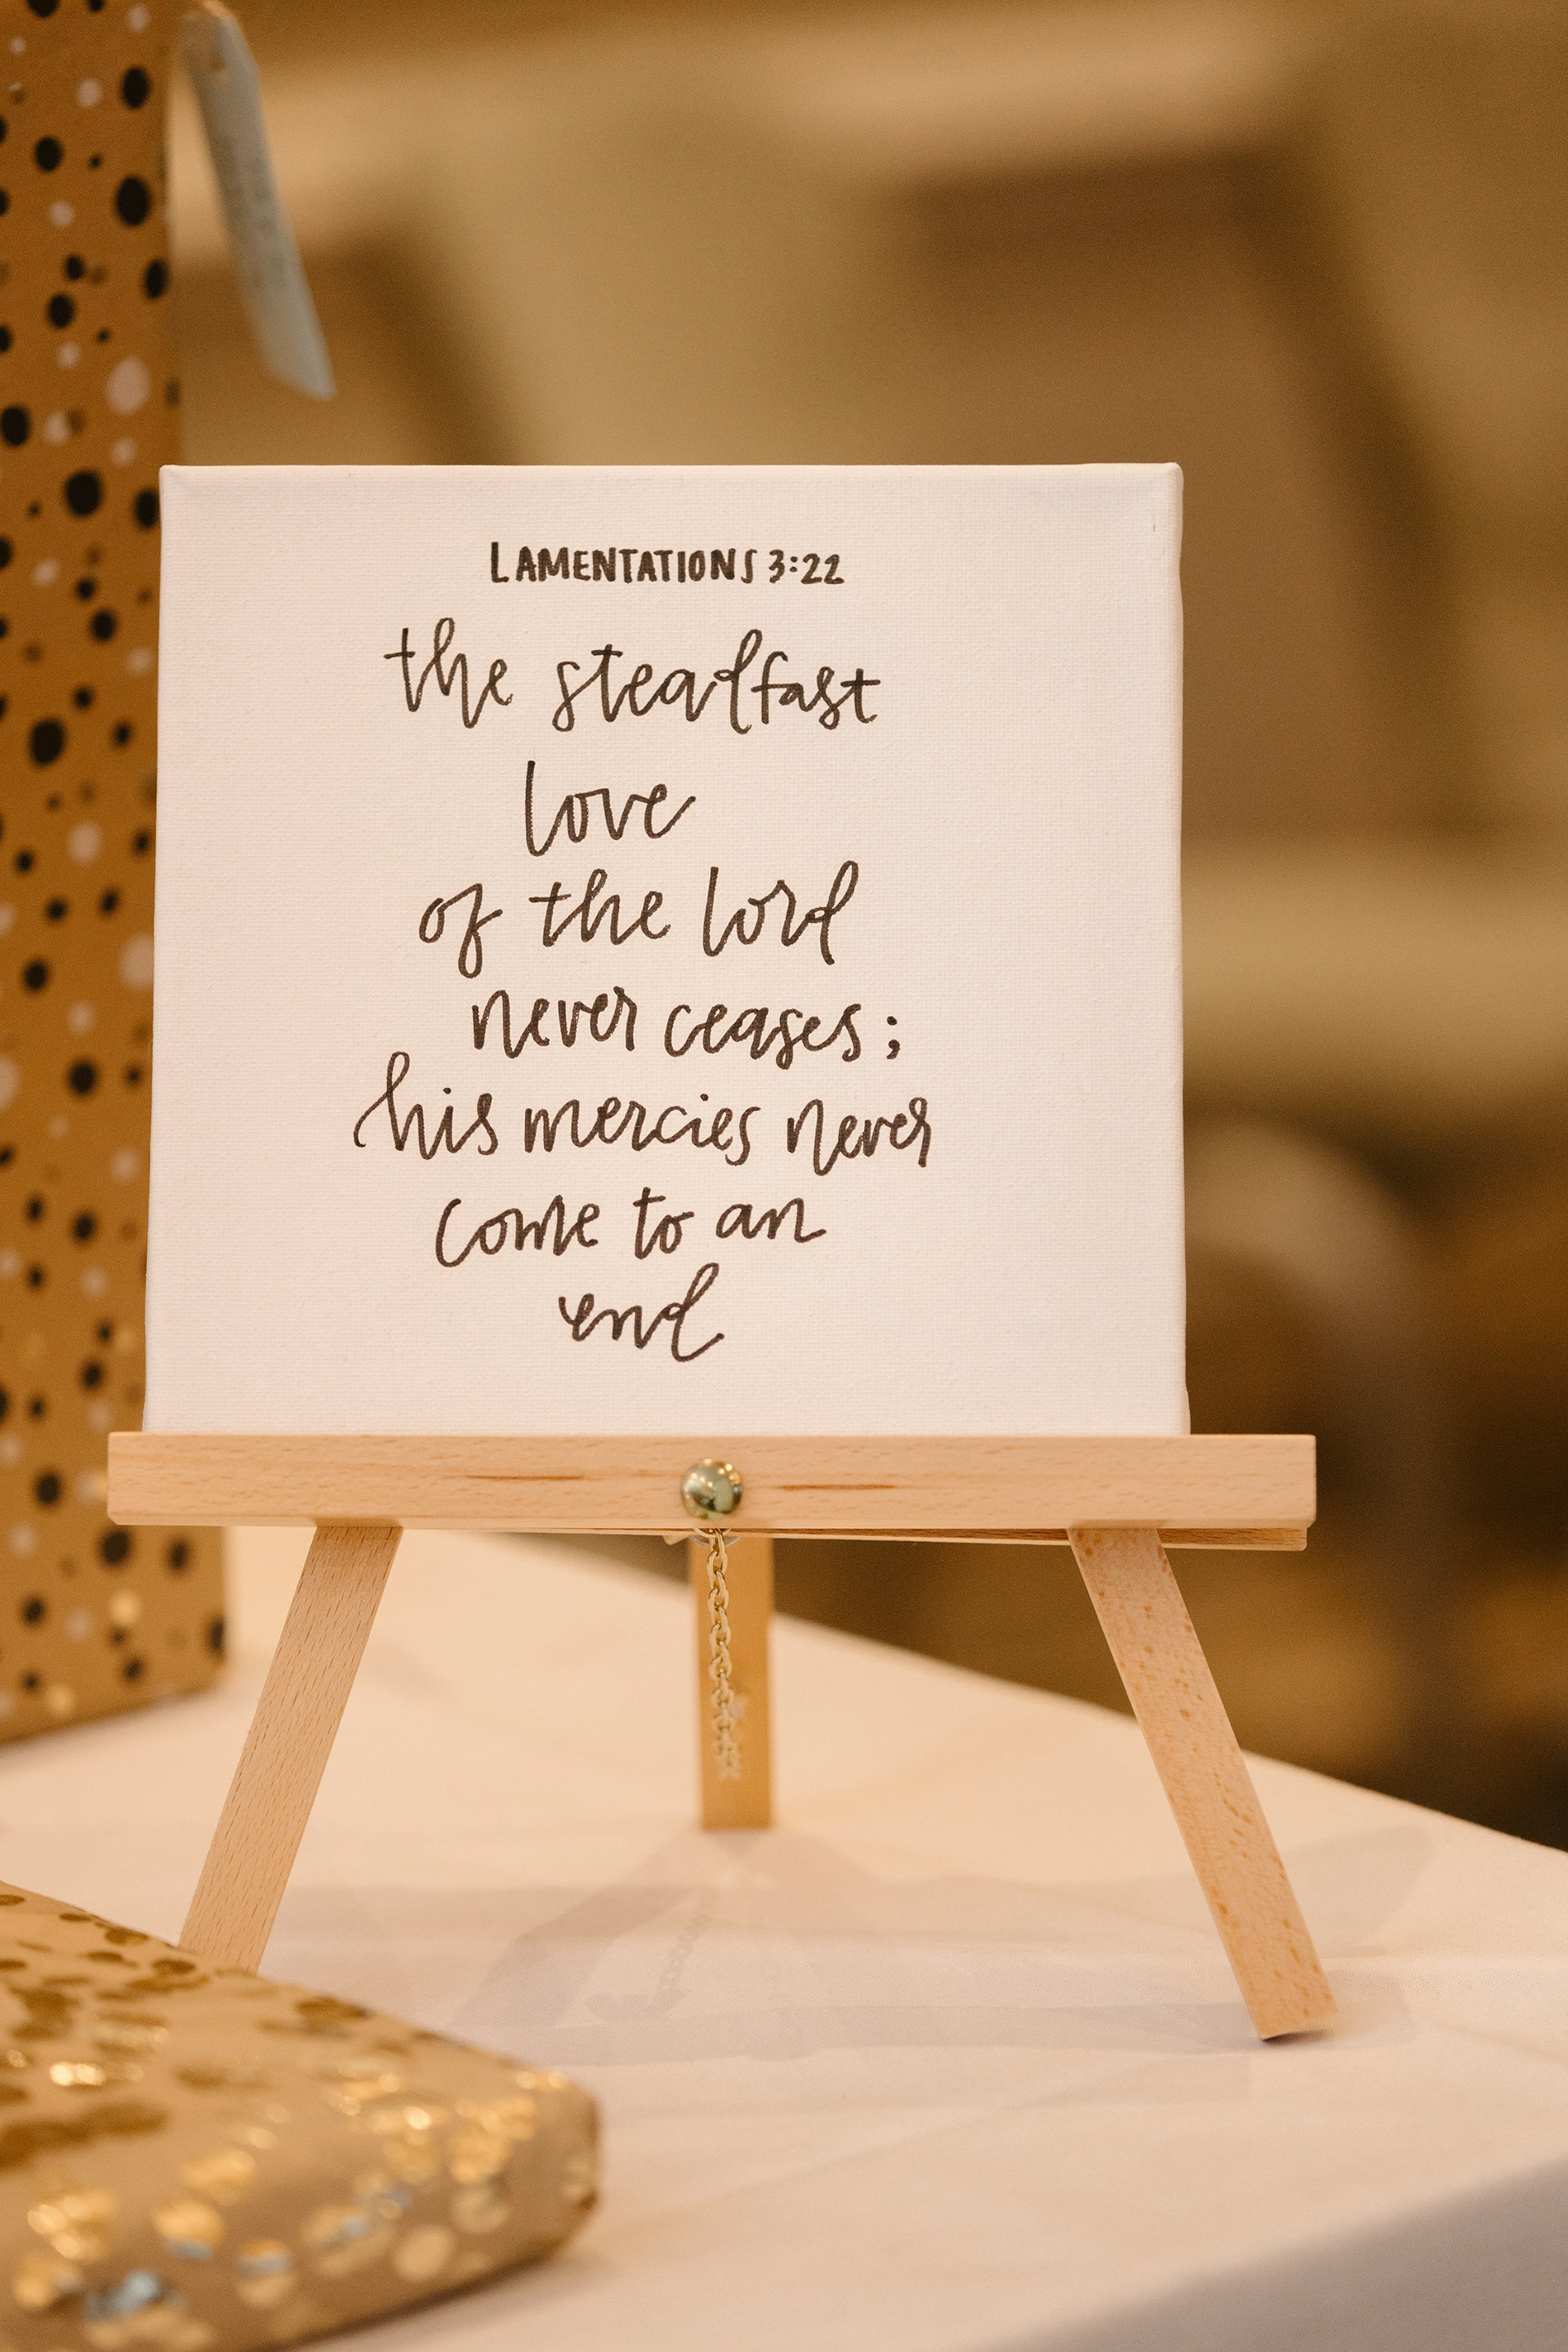 LAMENTATIONS 3:22
the steadfast
love
of the lord
never ceases;
his mercies never
come to an
end